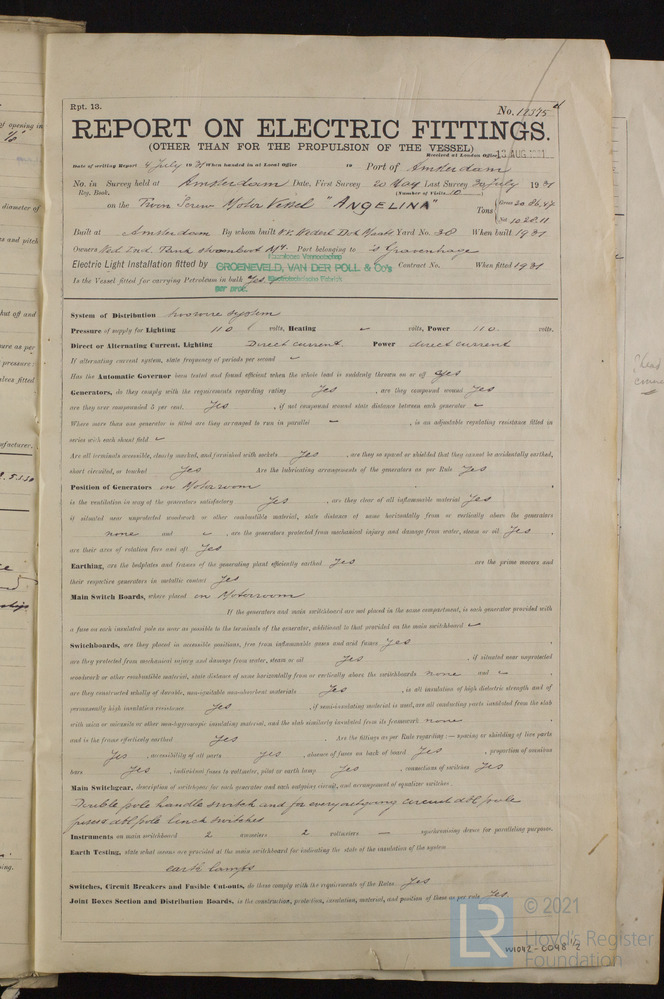 Rpt. 13.
No. 19375
REPORT ON ELECTRIC FITTINGS.
(OTHER THAN FOR THE PROPULSION OF THE VESSEL)
Received at London Office 13 AUG 1931
Date of writing Report 4 July 1931 When handed in at Local Office 19 Port of Amsterdam
No. in Survey held at Amsterdam Date, First Survey 20 May Last Survey 30 July 1931
Reg. Book. (Number of Visits 10)
on the Twin Screw Motor Vessel "ANGELINA" Tons { Gross 2086,47
Net 1020.11
Built at Amsterdam By whom built Yard No. 30 When built 1931
Owners Ned. Ind. Tank Port belonging to 's Gravenhage
Electric Light Installation fitted by GROENEVELD, VAN DER POLL & Co's Contract No. When fitted 1931
Is the Vessel fitted for carrying Petroleum in bulk yes.
per prok.
System of Distribution two wire system
Pressure of supply for Lighting 110 volts, Heating volts, Power 110 volts.
Direct or Alternating Current, Lighting Direct current Power direct current
If alternating current system, state frequency of periods per second
Has the Automatic Governor been tested and found efficient when the whole load is suddenly thrown on or off yes
Generators, do they comply with the requirements regarding rating Yes , are they compound wound Yes
are they over compounded 5 per cent. Yes , if not compound wound state distance between each generator
Where more than one generator is fitted are they arranged to run in parallel , is an adjustable regulating resistance fitted in
series with each shunt field
Are all terminals accessible, clearly marked, and furnished with sockets Yes , are they so spaced or shielded that they cannot be accidentally earthed,
short circuited, or touched Yes Are the lubricating arrangements of the generators as per Rule Yes
Position of Generators in Motorroom
is the ventilation in way of the generators satisfactory Yes , are they clear of all inflammable material Yes
if situated near unprotected woodwork or other combustible material, state distance of same horizontally from or vertically above the generators
none and , are the generators protected from mechanical injury and damage from water, steam or oil Yes ,
are their axes of rotation fore and aft Yes
Earthing, are the bedplates and frames of the generating plant efficiently earthed Yes are the prime movers and
their respective generators in metallic contact Yes
Main Switch Boards, where placed in Motorroom
If the generators and main switchboard are not placed in the same compartment, is each generator provided with
a fuse on each insulated pole as near as possible to the terminals of the generator, additional to that provided on the main switchboard
Switchboards, are they placed in accessible positions, free from inflammable gases and acid fumes Yes ,
are they protected from mechanical injury and damage from water, steam or oil Yes , if situated near unprotected
woodwork or other combustible material, state distance of same horizontally from or vertically above the switchboards none and ,
are they constructed wholly of durable, non-ignitable non-absorbent materials Yes , is all insulation of high dielectric strength and of
permanently high insulation resistance Yes , if semi-insulating material is used, are all conducting parts insulated from the slab
with mica or micanite or other non-hygroscopic insulating material, and the slab similarly insulated from its framework none ,
and is the frame effectively earthed Yes . Are the fittings as per Rule regarding :— spacing or shielding of live parts
Yes , accessibility of all parts yes , absence of fuses on back of board Yes , proportion of omnibus
bars Yes , individual fuses to voltmeter, pilot or earth lamp Yes , connections of switches Yes
Main Switchgear, description of switchgear for each generator and each outgoing circuit, and arrangement of equalizer switches
Double pole handle switch and for every outgoing circuit dbl pole
fuses dbl pole linch switches
Instruments on main switchboard 2 ammeters 2 voltmeters — synchronising device for paralleling purposes.
Earth Testing, state what means are provided at the main switchboard for indicating the state of the insulation of the system
earth lamps
Switches, Circuit Breakers and Fusible Cut-outs, do these comply with the requirements of the Rules Yes
Joint Boxes Section and Distribution Boards, is the construction, protection, insulation, material, and position of these as per rule Yes
W1042-0098 1/2
LR
© 2021
Lloyd's Register
Foundation